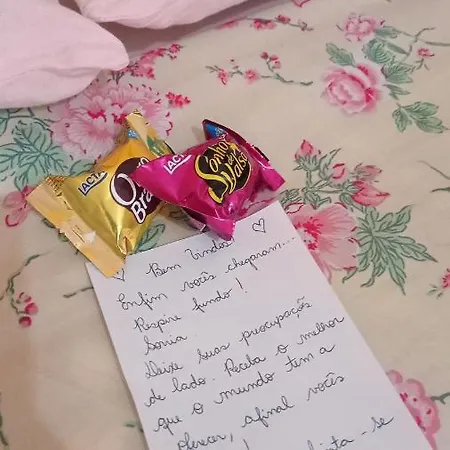 LACTA
Ouro
Bra
LACTA
Sonho
de
Valsa
Bem Vindos
Enfim vocês chegaram...
Respire fundo!
Sorria
Deixe suas preocupaçõs
de lado. Receba o melhor
que o mundo tem a
oferecer, afinal vocês
- se